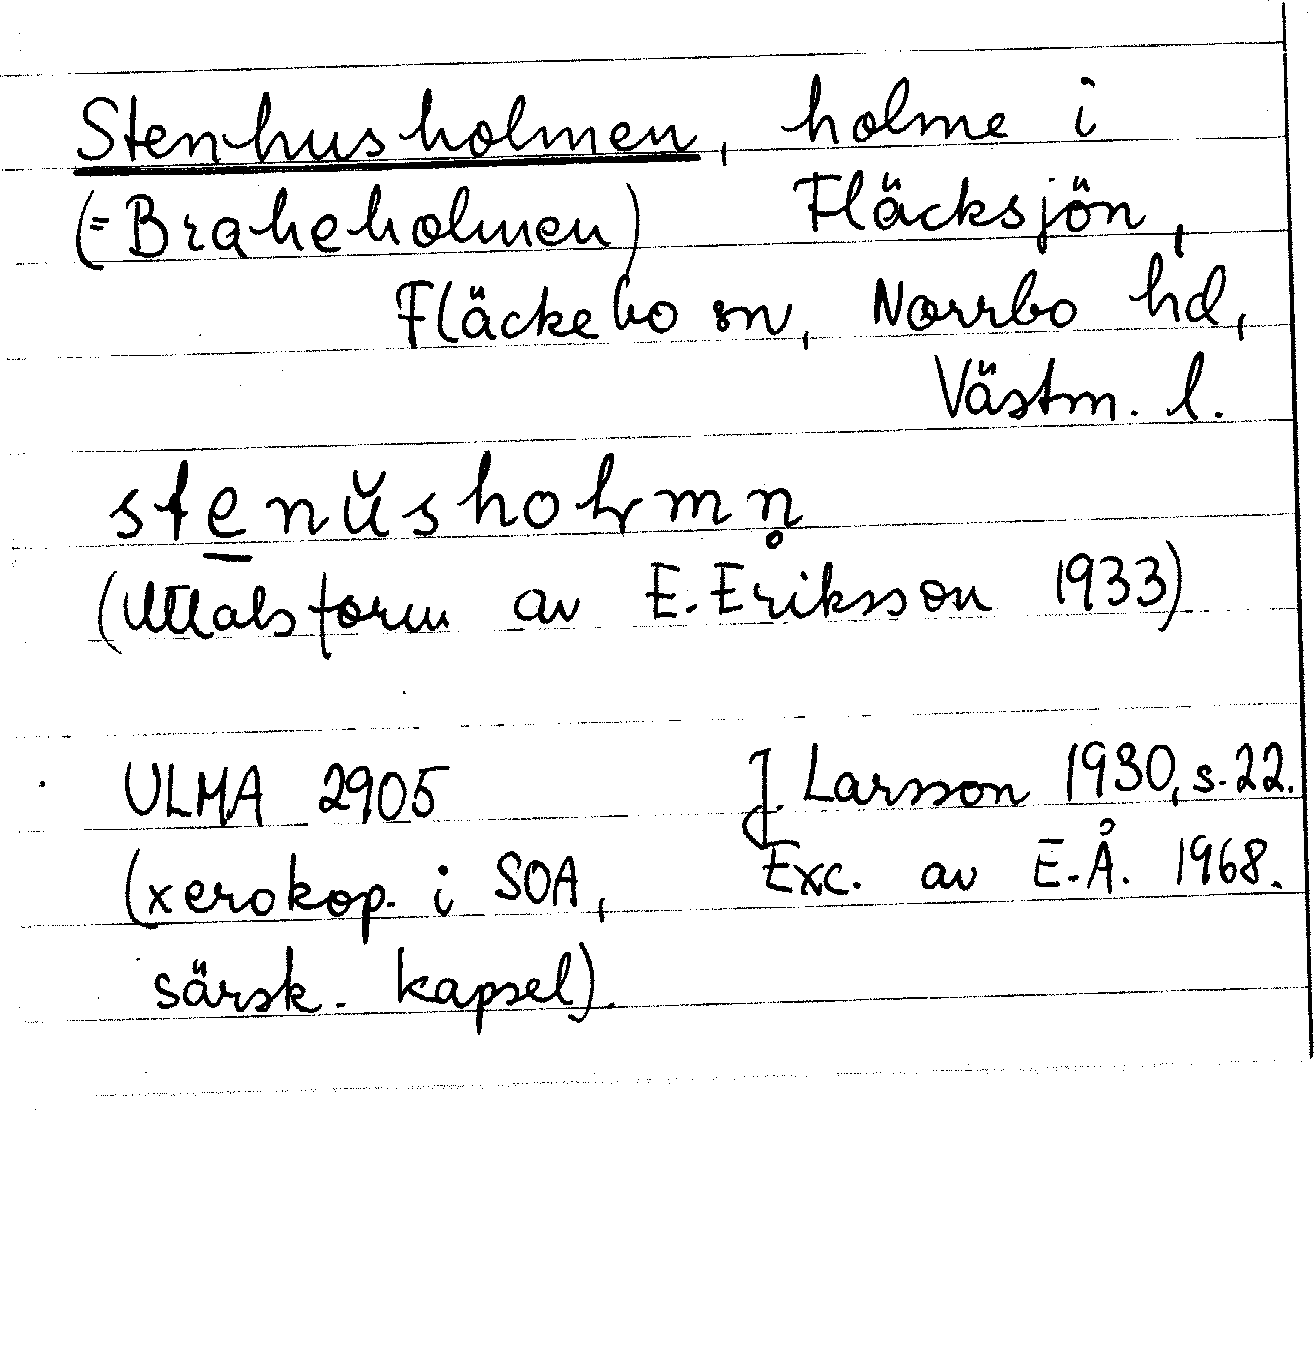 Stenhusholmen, holme i
(=Braheholmen) Fläcksjön,
Fläckebo sn, Norrbo hd,
Västm. l.
ste̲nŭsholmn̥
(Uttalsform av E. Eriksson 1933)
ULMA 2905 J. Larsson 1930, s. 22.
(xerokop. i SOA, Exc. av E.Å. 1968.
särsk. kapsel).